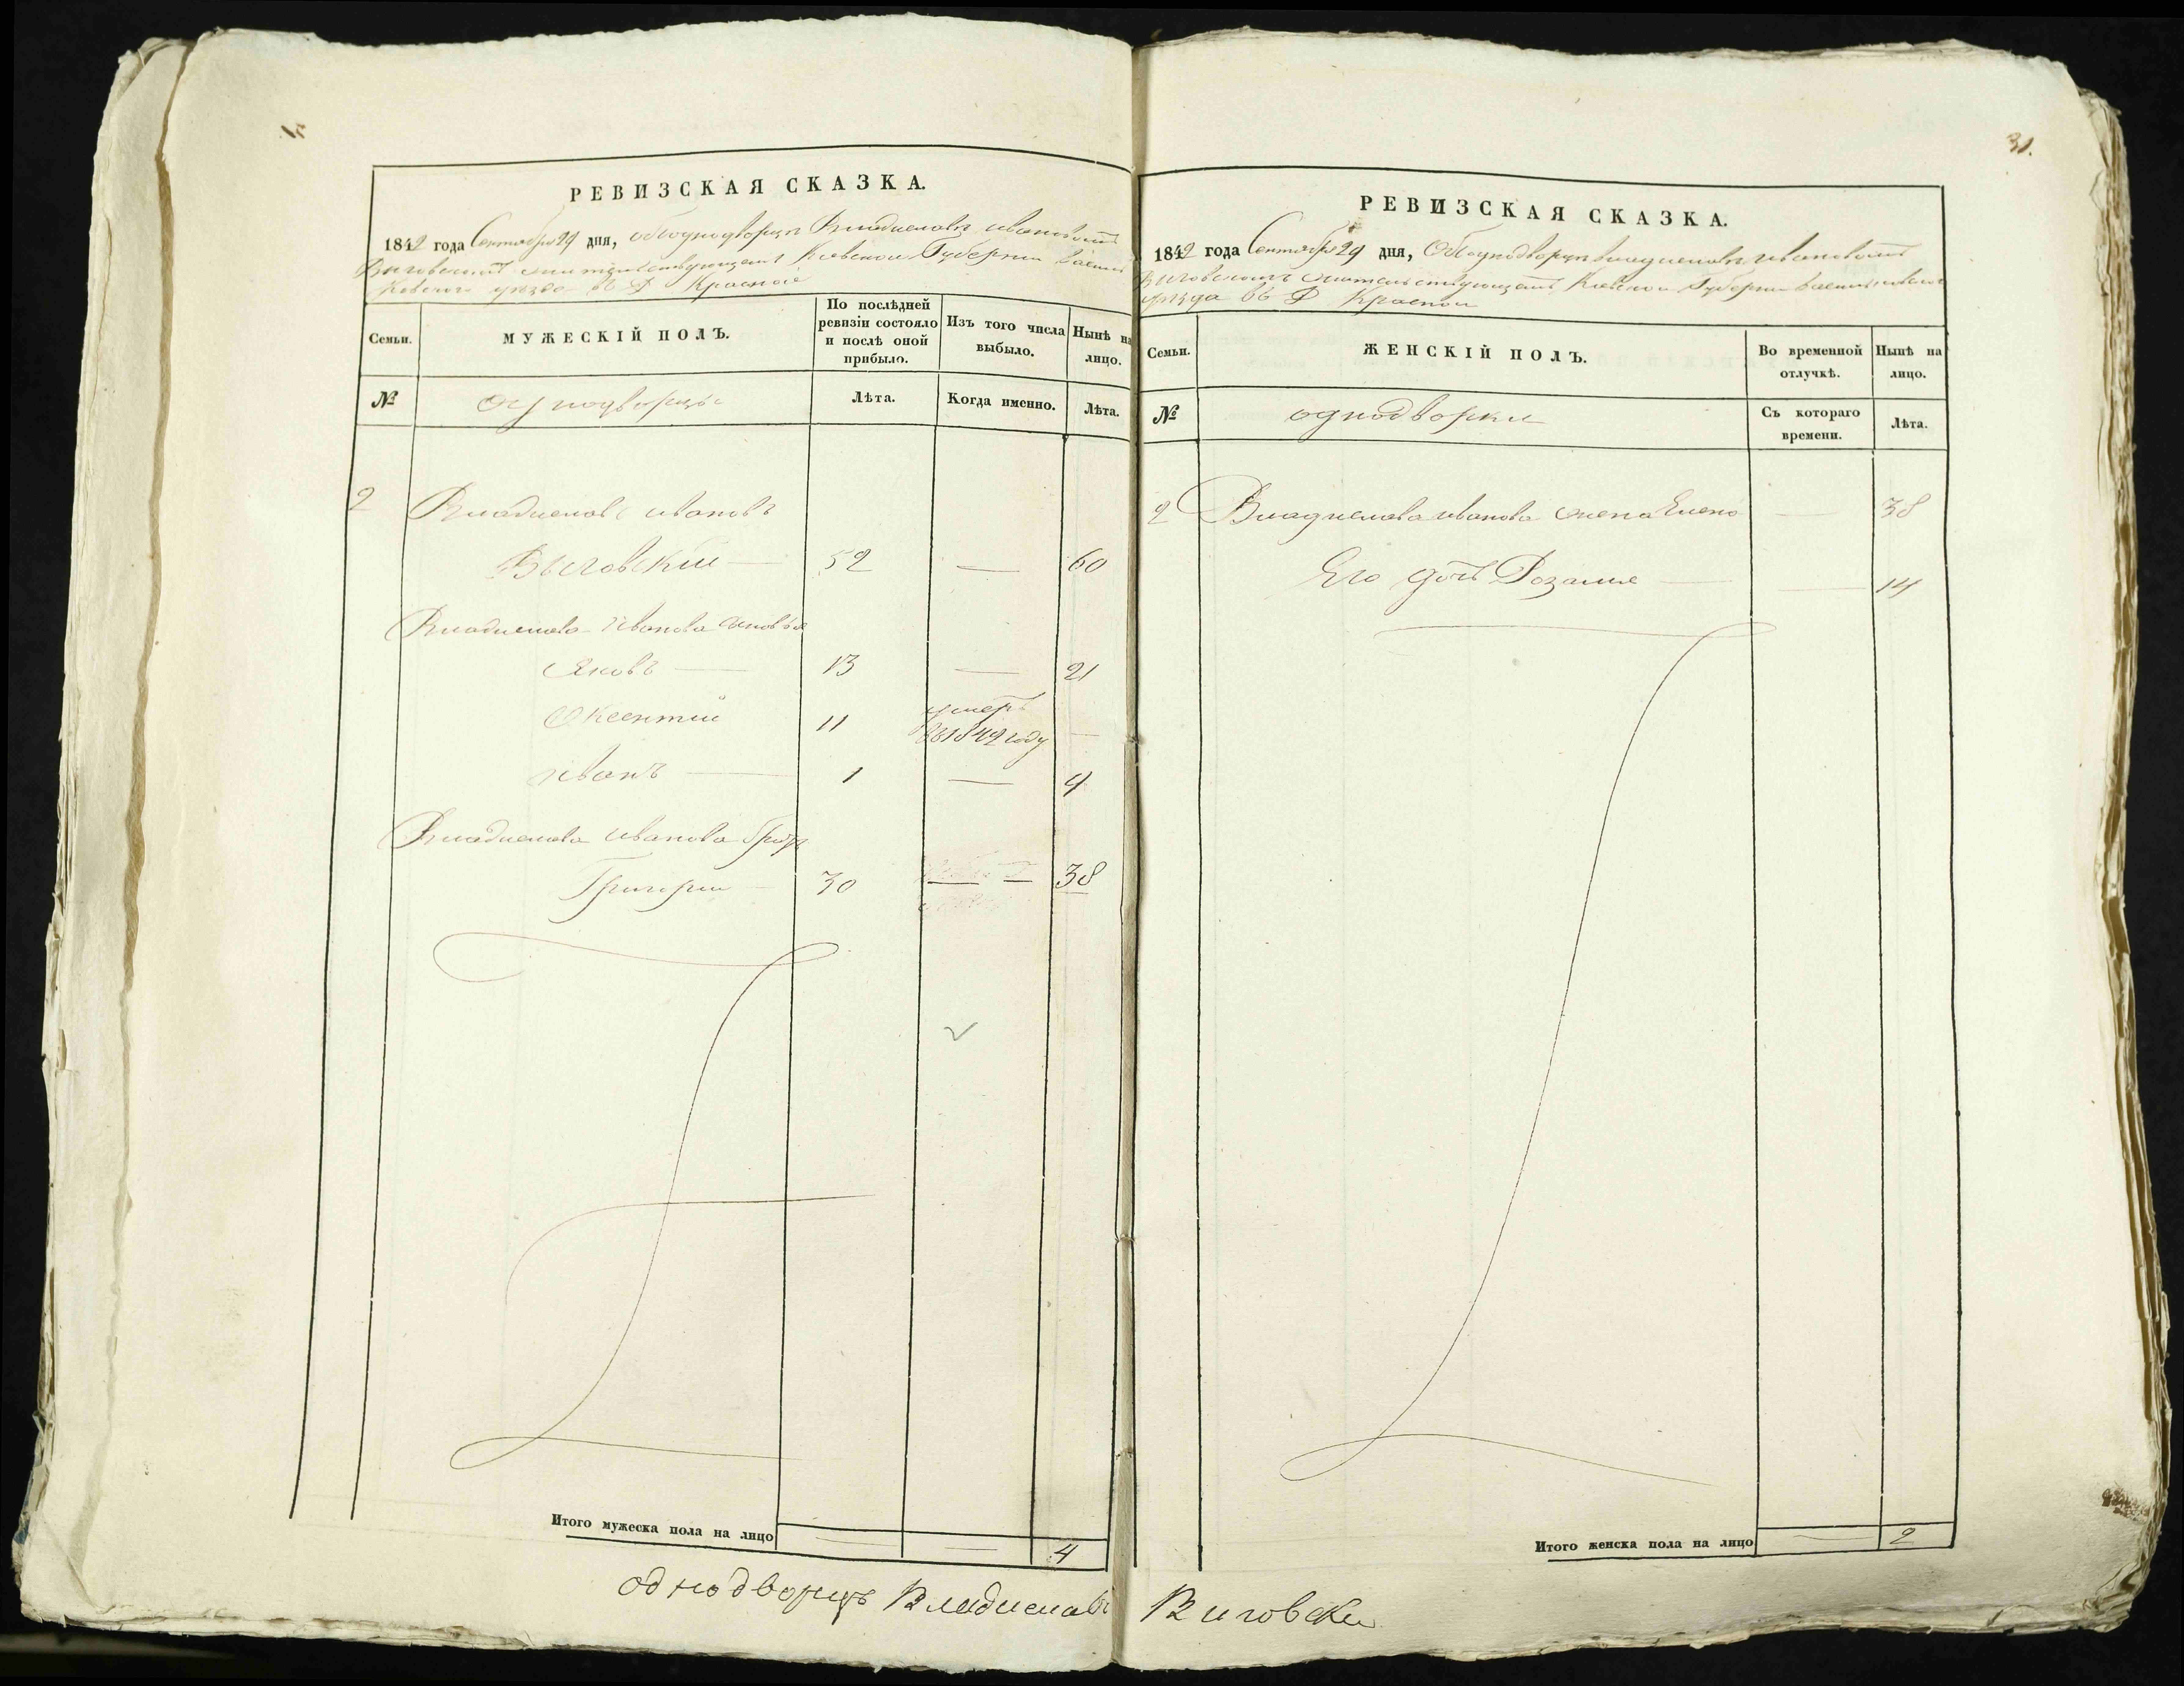 РЕВИЗСКАЯ СКАЗКА.
1842 года Сентября 29 дня, объ однодворце Владиславе Ивановомъ
Выговскомъ жительствующемъ Киевской Губернии Василь
ковского уезда въ Д Красной
Семьи.
МУЖЕСКІЙ ПОЛЪ.
По послѣдней ревизіи состояло и послѣ оной прибыло.
Изъ того числа выбыло.
Нынѣ на лицо.
№
Однодворцы
Лѣта.
Когда именно.
Лѣта.
2 Владиславъ Ивановъ
Выговскій 52 — 60
Владислава Иванова сыновья
Яковъ 13 — 21
Оксентій 11 умеръ въ 1842 году —
Иванъ 1 — 9
Владислава Иванова братъ
Григории 30 — 38
Итого мужеска пола на лицо — — 4
31.
РЕВИЗСКАЯ СКАЗКА.
1842 года Сентября 29 дня, Объ однодворце Владиславе Ивановомъ
Выговскомъ жительствующемъ Киевской Губернии Васильковского
уезда въ Д Красной
Семьи.
ЖЕНСКІЙ ПОЛЪ.
Во временной отлучкѣ.
Нынѣ на лицо.
№
однодворки
Съ котораго времени.
Лѣта.
2 Владислава Иванова жена Елена — 38
Его дочь Розалия — 14
Итого женска пола на лицо — 2
однодворецъ Владиславъ Виговски